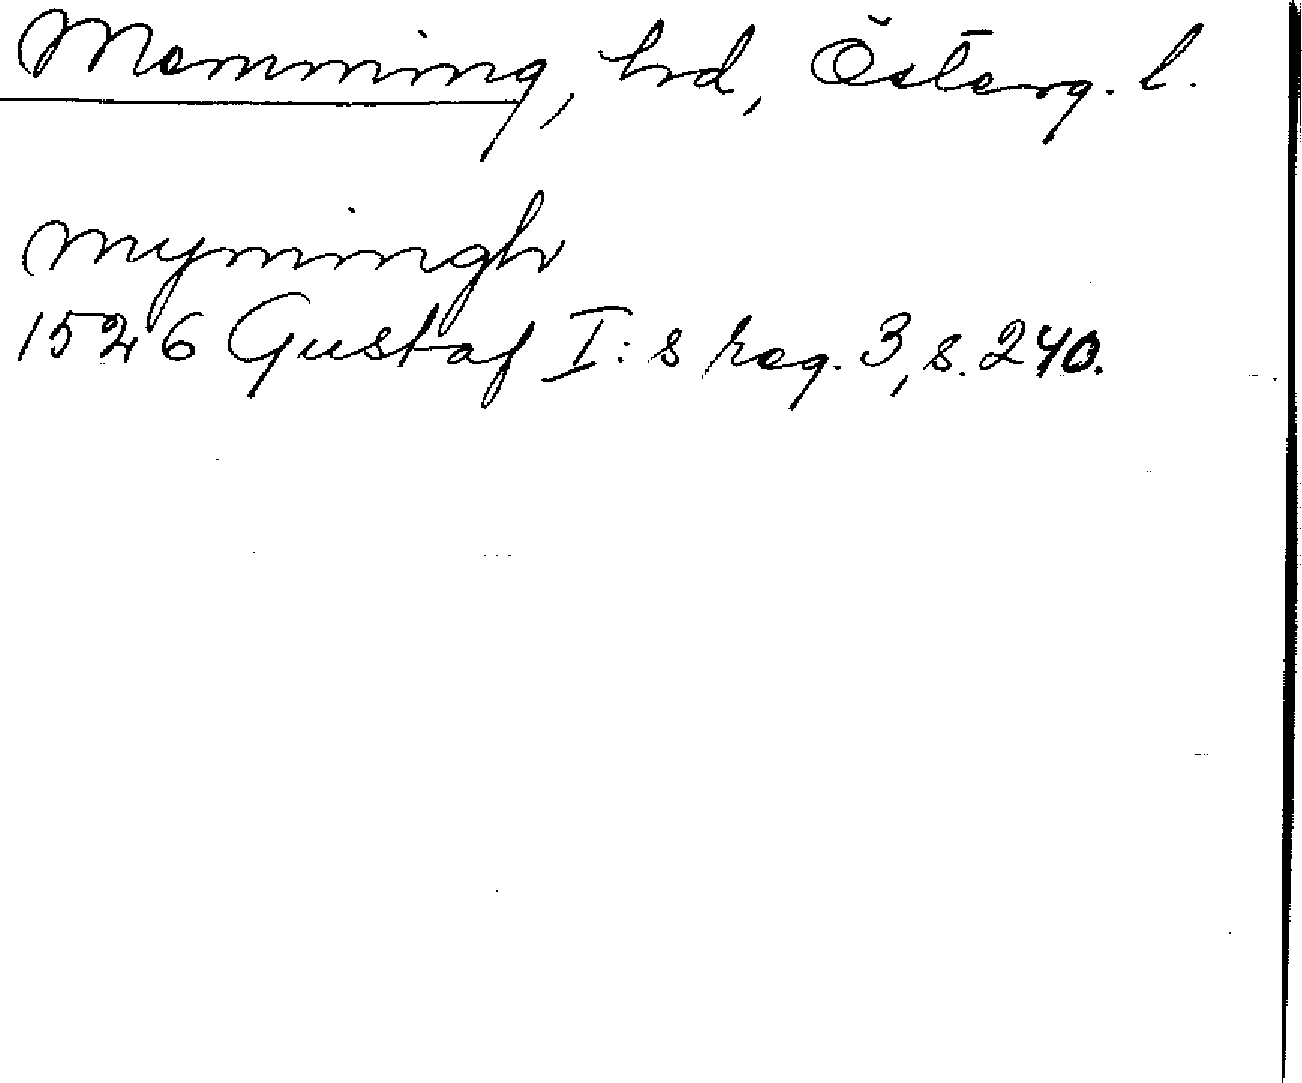 Memming, hd, Österg. l.
myningh
1526 Gustaf I:s reg. 3, s. 240.